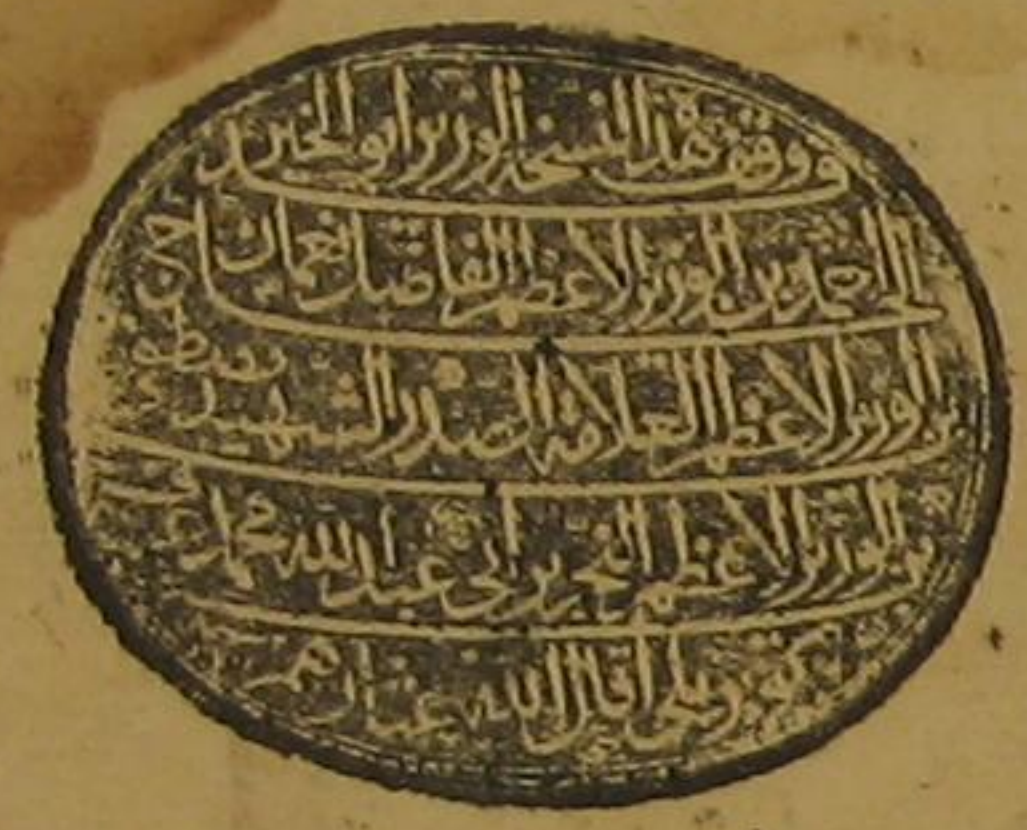 وقف هذه النسخة الوزير ابو الخير
الحاج احمد بن الوزير الاعظم الفاضل نعمان
بن الوزير الاعظم العلامة الصدر الشهيد مصطفى
بن الوزير الاعظم النحرير ابي عبد الله محمد
كوپريلي اقال الله عثارهم